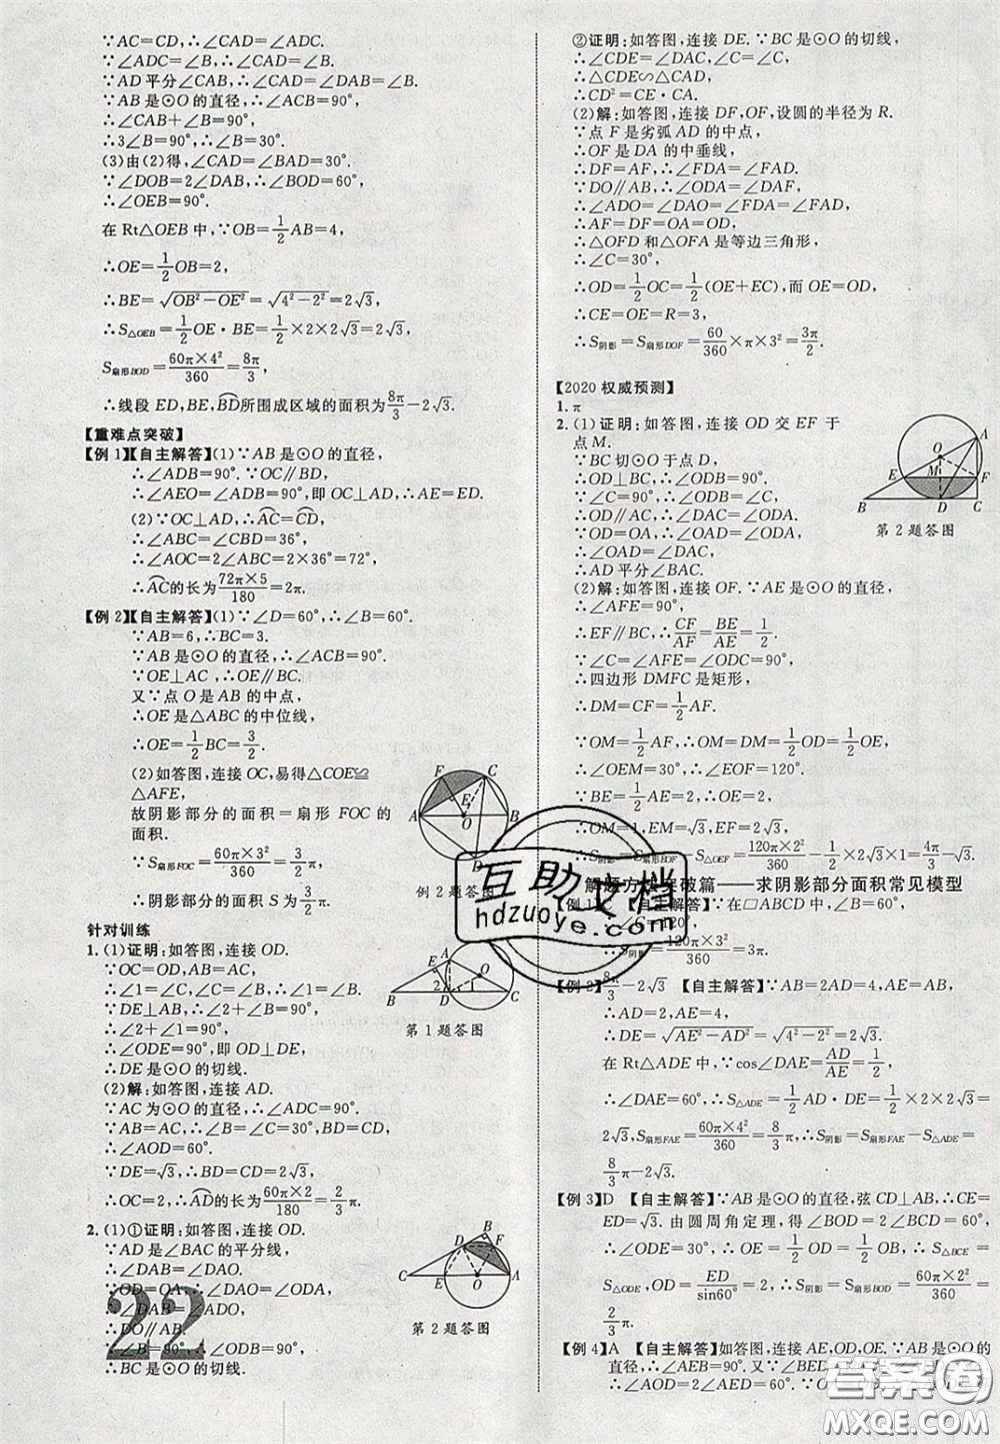 ∵AC=CD,∴∠CAD=∠ADC.
∵∠ADC=∠B,∴∠CAD=∠B.
∵AD平分∠CAB,∴∠CAD=∠DAB=∠B.
∵AB是⊙O的直径,∴∠ACB=90°,
∴∠CAB+∠B=90°,
∴3∠B=90°,∴∠B=30°.
(3)由(2)得,∠CAD=∠BAD=30°.
∵∠DOB=2∠DAB,∴∠BOD=60°,
∴∠OEB=90°.
在Rt△OEB中,∵OB=1/2AB=4,
∴OE=1/2OB=2,
∴BE=√(OB²-OE²)=√(4²-2²)=2√3,
∴S△OEB=1/2OE·BE=1/2×2×2√3=2√3,
S扇形BOD=60π×4²/360=8π/3,
∴线段ED,BE,BD所围成区域的面积为8π/3-2√3.
【重难点突破】
【例1】【自主解答】(1)∵AB是⊙O的直径,
∴∠ADB=90°.∵OC∥BD,
∴∠AEO=∠ADB=90°,即OC⊥AD,∴AE=ED.
(2)∵OC⊥AD,∴AC=CD,
∴∠ABC=∠CBD=36°,
∴∠AOC=2∠ABC=2×36°=72°,
∴AC的长为72π×5/180=2π.
【例2】【自主解答】(1)∵∠D=60°,∴∠B=60°.
∵AB=6,∴BC=3.
∵AB是⊙O的直径,∴∠ACB=90°.
∵OE⊥AC,∴OE∥BC.
又∵点O是AB的中点,
∴OE是△ABC的中位线,
∴OE=1/2BC=3/2.
(2)如答图,连接OC,易得△COE≌
△AFE,
故阴影部分的面积=扇形FOC的
面积.
∵S扇形FOC=60π×3²/360=3π/2,
∴阴影部分的面积S为3π/2.
例2题答图
针对训练
1.(1)证明:如答图,连接OD.
∵OC=OD,AB=AC,
∴∠1=∠C,∠C=∠B,∴∠1=∠B.
∵DE⊥AB,∴∠2+∠B=90°,
∴∠2+∠1=90°,
∴∠ODE=90°,即OD⊥DE,
∴DE是⊙O的切线.
第1题答图
(2)解:如答图,连接AD.
∵AC为⊙O的直径,∴∠ADC=90°.
∵AB=AC,∴∠B=∠C=30°,
∴∠AOD=60°.
∵DE=√3,∴BD=CD=2√3,
∴OC=2,∴AD的长为60π×2/180=2/3π.
2.(1)①证明:如答图,连接OD.
∵AD是∠BAC的平分线,
∴∠DAB=∠DAO.
∵OD=OA,∴∠DAO=∠ODA,
∴∠DAB=∠ADO,
∴DO∥AB.
∵∠B=90°,∴∠ODB=90°,
∴BC是⊙O的切线.
第2题答图
22
②证明:如答图,连接DE.∵BC是⊙O的切线,
∴∠CDE=∠DAC,∠C=∠C,
∴△CDE∽△CAD,
∴CD²=CE·CA.
(2)解:如答图,连接DF,OF,设圆的半径为R.
∵点F是劣弧AD的中点,
∴OF是DA的中垂线,
∴DF=AF,∴∠FDA=∠FAD.
∵DO∥AB,∴∠ODA=∠DAF,
∴∠ADO=∠DAO=∠FDA=∠FAD,
∴AF=DF=OA=OD,
∴△OFD和△OFA是等边三角形,
∴∠C=30°,
∴OD=1/2OC=1/2(OE+EC),而OE=OD,
∴CE=OE=R=3,
∴S阴影=S扇形DOF=60/360×π×3²=3π/2.
【2020权威预测】
1.π
2.(1)证明:如答图,连接OD交EF于
点M.
∵BC切⊙O于点D,
∴OD⊥BC,∴∠ODB=90°.
∵∠C=90°,∴∠ODB=∠C,
∴OD∥AC,∴∠ODA=∠DAC.
∵OD=OA,∴∠OAD=∠ODA,
∴∠OAD=∠DAC,
∴AD平分∠BAC.
第2题答图
(2)解:如答图,连接OF.∵AE是⊙O的直径,
∴∠AFE=90°,
∴EF∥BC,∴CF/AF=BE/AE=1/2.
∵∠C=∠AFE=∠ODC=90°,
∴四边形DMFC是矩形,
∴DM=CF=1/2AF.
∵OM=1/2AF,∴OM=DM=1/2OD=1/2OE,
∴∠OEM=30°,∴∠EOF=120°.
∵BE=1/2AE=2,∴AE=4,∴OE=2,
∴OM=1,EM=√3,∴EF=2√3,
∴S阴影=S扇形EOF-S△OEF=120π×2²/360-1/2×2√3×1=4π/3-√3.
解题方法突破篇——求阴影部分面积常见模型
【例1】C 【自主解答】∵在□ABCD中,∠B=60°,
∴∠C=120°,∴S阴影=120π×3²/360=3π.
【例2】8π/3-2√3 【自主解答】∵AB=2AD=4,AE=AB,
∴AD=2,AE=4,
∴DE=√(AE²-AD²)=√(4²-2²)=2√3.
在Rt△ADE中,∵cos∠DAE=AD/AE=1/2,
∴∠DAE=60°,∴S△ADE=1/2AD·DE=1/2×2×2√3=
2√3,S扇形FAE=60π×4²/360=8/3π,∴S阴影=S扇形FAE-S△ADE=
8/3π-2√3.
【例3】D 【自主解答】∵AB是⊙O的直径,弦CD⊥AB,∴CE=
ED=√3.由圆周角定理,得∠BOD=2∠BCD=60°,
∴∠ODE=30°,∴OE=1/2OD=1/2OB,∴S△BCE=
S△ODE,OD=ED/sin60°=2,∴S阴影=S扇形BOD=60π×2²/360=
2/3π.
【例4】A 【自主解答】如答图,连接AE,OD,OE.∵AB是⊙O的
直径,∴∠AEB=90°.又∵∠BED=
∴∠AOD=2∠AED=
互助文档
hdzuoye.com
答案圈
MXQE.COM